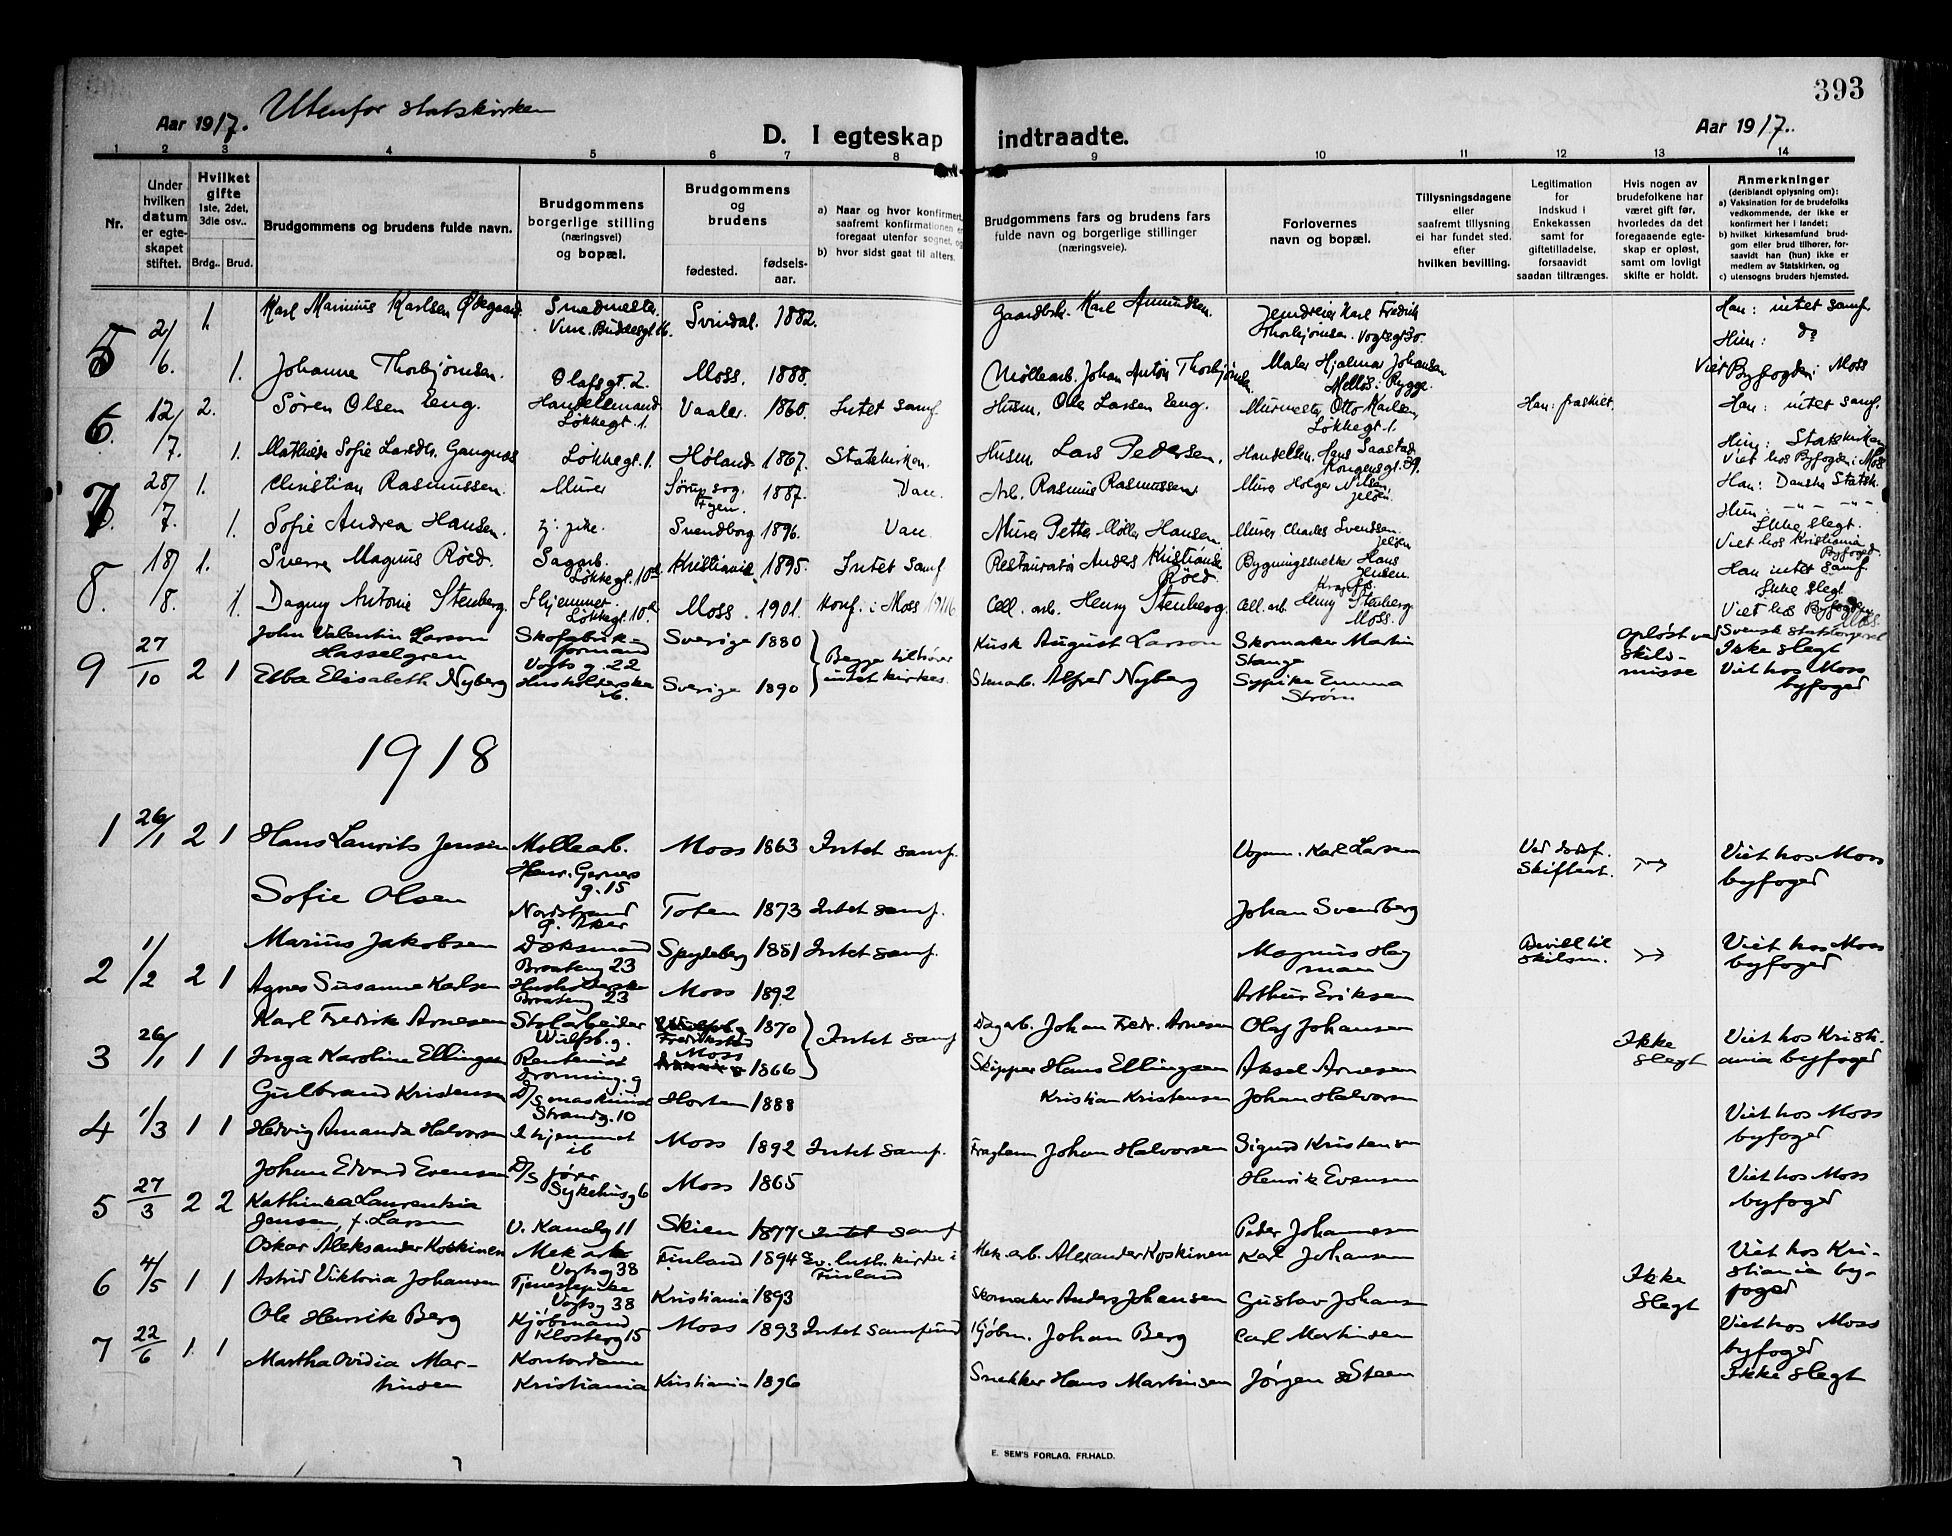 393
Aar 1917. Utenfor statskirken
D. I egteskap indtraadte.
Aar 1917.
1 2 3 4 5 6 7 8 9 10 11 12 13 14
Nr.
Under hvilken datum er egteskapet stiftet.
Hvilket gifte 1ste, 2det, 3die osv..
Brdg.. Brud.
Brudgommens og brudens fulde navn.
Brudgommens borgerlige stilling (næringsvei) og bopæl.
Brudgommens og brudens
fødested. fødsels-aar.
a) Naar og hvor konfirmert, saafremt konfirmationen er foregaat utenfor sognet, og
b) hvor sidst gaat til alters.
Brudgommens fars og brudens fars fulde navn og borgerlige stillinger (næringsveie).
Forlovernes navn og bopæl.
Tillysningsdagene eller saafremt tillysning ei har fundet sted. efter hvilken bevilling.
Legitimation for Indskud i Enkekassen samt for giftetilladelse, forsaavidt saadan tiltrænges.
Hvis nogen av brudefolkene har været gift før, hvorledes da det foregaaende egteskap er opløst, samt om lovligt skifte er holdt.
Anmerkninger (deriblandt oplysning om): a) Vaksination for de brudefolks vedkommende, der ikke er konfirmert her i landet; b) hvilket kirkesamfund brudgom eller brud tilhører, forsaavidt han (hun) ikke er medlem av Statskirken, og c) utensogns bruders hjemsted.
5 21/6. 1. Karl Marinius Karlsen Smedmester Svindal. 1882. Gaardbr. Karl Amundsen. Karl Fredrik Thorbjørnsen. Vogtsgt 30. Han: intet samf. Hun: do
1. Johanne Thorbjørnsen. Olafsgt. 2. Moss. 1888. Møllearb. Johan Anton Thorbjørnsen Maler Hjalmar Johansen Melløs: Rygge. Viet Byfogden i Moss
6. 12/7. 2. Søren Olsen Eeng. Handelsmand Løkkegt. 1. Vaaler. 1860. Intet samf. Husm. Ole Larsen Eeng. Murmester Otto Karlsen, Løkkegt 1. Han: fraskilt. Han: intet samf.
1. Mathilde Sofie Larsdtr. Gangnæs Løkkegt. 1. Høland 1867. Statskirken. Husm. Lars Pedersen, Handelsm. Hans Saastad Kongensgt. 39. Hun: Statskirken Viet hos Byfogden i Moss
7. 28/7. 1. Christian Rasmussen. Murer 1887. Arb. Rasmus Rasmussen Murer Holger Nilsen, Jeløen. Han: Danske Statsk.
1. Sofie Andrea Hansen. Svendborg 1896. Murer Petter Møller Hansen. Murer Charles Svendsen. Jeløen Hun: - " - " - Ikke slegt. Viet hos Kristiania Byfoged.
8. 18/8. 1. Sverre Magnus Røed. Sagarb. Løkkegt. 10a Kristiania. 1895. Intet samf Restauratør Anders Kristiansen Røed. Bygningssnekker Hans Jensen. Han intet samf Ikke slegt
1. Dagny Antonie Stenberg. I hjemmet. Løkkegt. 10a Moss. 1901. Konf. i Moss 1916 Cell. arb. Henry Stenberg. Cell. arb. Henry Stenberg Moss. Viet hos Byfogden Moss.
9 27/10 2 1 John Valentin Larson Hasselgren Skofabrik-formand Vogts g. 22 Sverige 1880 Begge tilhører intet kirkes. Kusk August Larson Skomaker Martin Stange Opløst ved skilsmisse Svensk statsborger Ikke slegt
Ebba Elisabeth Nyberg Husholderske ib. Sverige 1890 Stenarb. Alfred Nyberg Sypike Emma Strøm Viet hos Moss byfoged
1918
1 26/1 2 1 Hans Laurits Jensen Møllearb. Henr. Gerners g. 15 Moss 1863 Intet samf. Vognm. Karl Larsen Ved dødsf. Skifteat. Viet hos Moss byfoged
Sofie Olsen Nordstrand Aker Toten 1873 Intet samf. Johan Svendberg
2 1/2 2 1 Marius Jakobsen Dæksmand Braateng 23 Spydeberg 1881 Intet samf. Magnus Hagman Bevill til skilsm. Viet hos Moss byfoged
Agnes Susanne Karlsen Husholderske Braateng 23 Moss 1892 Arthur Eriksen
3 26/1 1 1 Karl Fredrik Arnesen Stolarbeider Wulfsb. g. Fredrikstad 1870 Intet samf Dagarb. Johan Fredr. Arnesen Olaf Johansen Ikke slegt Viet hos Kristiania byfoged
Inga Karoline Ellingsen Rentenist Dronning. g Moss 1866 Skipper Hans Ellingsen Aksel Arnesen
4 1/3 1 1 Gulbrand Kristensen D/s maskinist Strandg. 10 Horten 1888 Kristian Kristensen Johan Halvorsen Viet hos Moss byfoged
Hedvig Amanda Halvorsen I hjemmet ib Moss 1892 Intet samf. Johan Halvorsen Sigurd Kristensen
5 27/3 2 2 Johan Edvard Evensen D/s fører Sykehusg 6 Moss 1865 Henrik Evensen Viet hos Moss byfoged
Kathinka Laurentzia Jensen, f. Larsen V. Kanalg 11 Skien 1877 Intet samf Peder Johannesen
6 4/5 1 1 Oskar Aleksander Koskinen Mek arb Vogtsg 38 Finland 1894 Ev. luth. kirke i Finland Mek. arb. Alexander Koskinen Karl Johansen Ikke slegt Viet hos Kristiania byfoged
Astrid Viktoria Johansen Tjenestepike Vogtsg 38 Kristiania 1893 Skomaker Anders Johansen Gustav Johans
7 22/6 1 1 Ole Henrik Berg Kjøbmand Klosterg 15 Moss 1893 Intet samfund Kjøbm. Johan Berg Carl Martinsen Viet hos Moss byfoged Ikke slegt
Martha Ovidia Martinsen Kontordame Kristiania Kristiania 1896 Snekker Hans Martinsen Jørgen Steen
E. SEM'S FORLAG, FR.HALD.